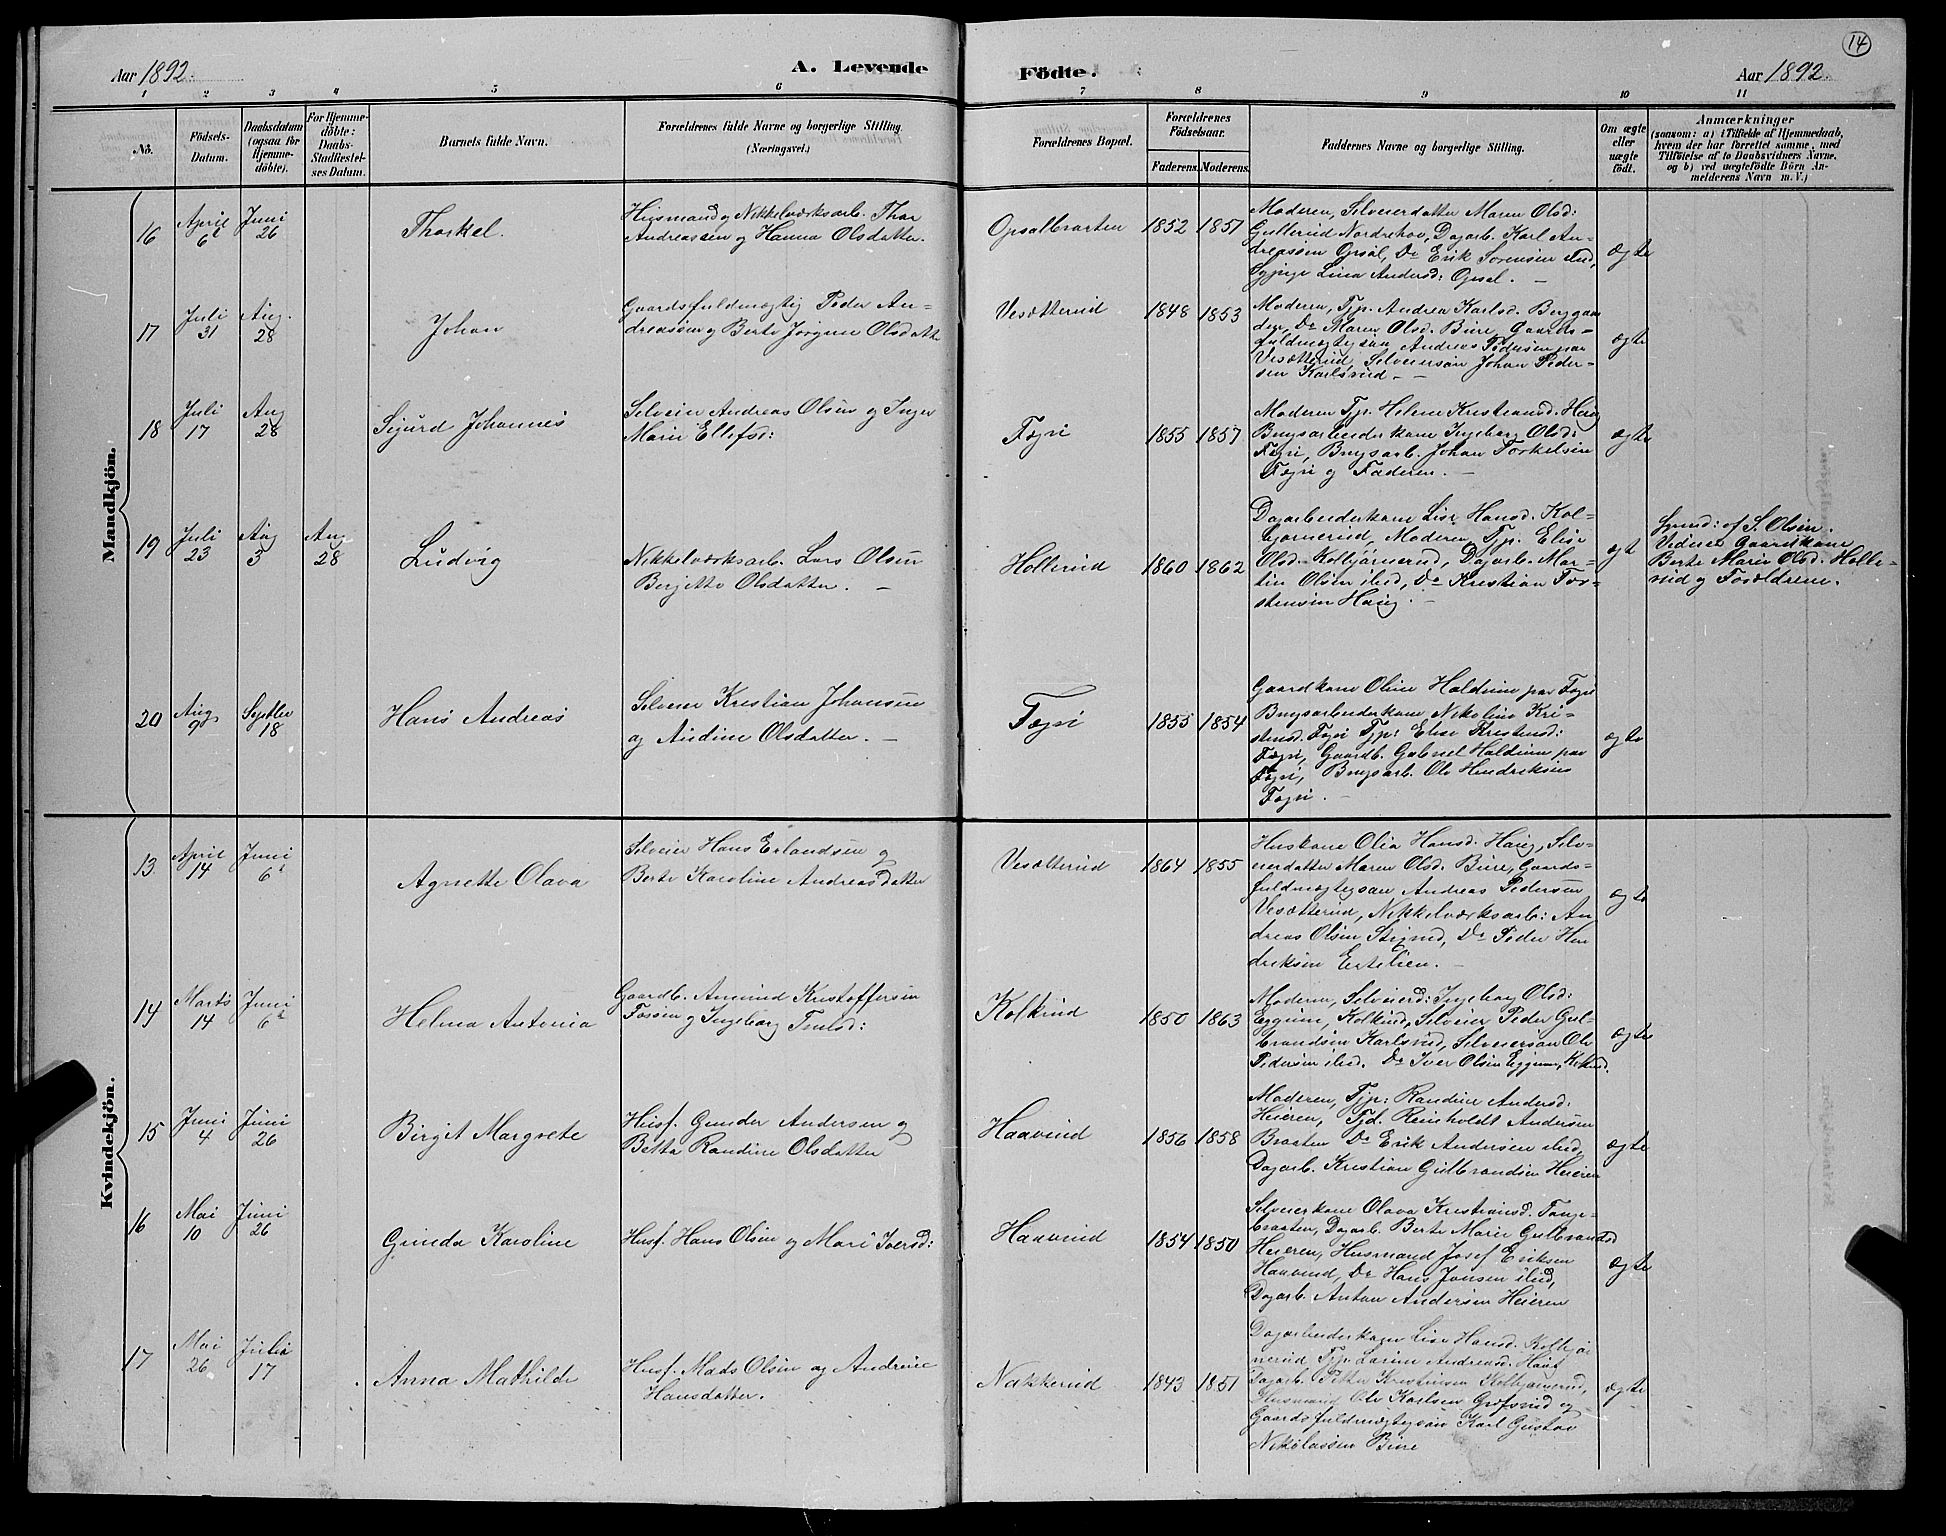 14
Aar 1892.
A. Levende
Födte.
Aar 1892.
1 2 3 4 5 6 7 8 9 10 11
No.
Födsels-
Datum.
Daabsdatum
(ogsaa for
Hjemme-
döbte).
For Hjemme-
döbte:
Daabs-
Stadfæstel-
ses Datum.
Barnets fulde Navn.
Forældrenes fulde Navne og borgerlige Stilling
(Næringsvei.)
Forældrenes Bopæl.
Forældrenes
Födselsaar.
Faderens. Moderens.
Faddernes Navne og borgerlige Stilling.
Om ægte
eller
uægte
födt.
Anmærkninger
(saasom: a) i Tilfælde af Hjemmedaab,
hvem der har forrettet samme, med
Tilföielse af to Daabsvidners Navne,
og b) ved uægtefödte Börn An-
melderens Navn m. V.)
Mandkjön.
16
April
6
Juni
26
Thorkel.
Husmand og Nikkelværksarb. Thor
Andreassen og Hanna Olsdatter.
Opsalbraaten
1852 1851
Moderen, Selveierdatter Maren Olsd:
Gullerud Norderhov, Dagarb. Karl An-
dreassen Opsal, Do Erik Sorensen ibid,
Gjpige Lina Andersd: Opsal. —
ægte
17
Juli
31
Aug.
28
Johan
Gaardsfuldmægtig Peder An-
dreasen og Berte Jörgine Olsdatte
Vesætterud
1848 1853
Moderen, Tjp. Andrea Karlsd. Byggan
den, Do Maren Olsd. Bure, Gaards-
fuldmægtigsøn Andreas Pedersen paa
Vesætterud, Selveiersøn Johan Peder-
sen Karlsrud. —
ægte
18
Juli
17
Aug
28
Sigurd Johannes
Selveier Andreas Olsen og Inger
Marie Ellefsd:
Fegri
1855 1857
Moderen Tjp. Helene Kristiansd. Haug
Brugsarbeiderkone Ingeborg Olsd:
Fegri, Brugsarb. Johan Torkelsen
Fegri og Faderen. —
ægte
19
Juli
23
Aug
3
Aug
28
Ludvig
Nikkelværksarb. Lars Olsen
Birgitte Olsdatter. —
Hollerud
1860 1862
Dagarbeiderkone Lise Hansd. Kol-
bjørnerud, Moderen, Tjp. Elise
Olsd. Kolbjørnerud, Dagarb. Mar-
tin Olsen ibid, Do Kristian Tor-
stensen Haug. —
ægt
af S. Olsen.
Vidner Gaardkone
Berte Marie Olsd. Holle-
rud og Forældrene.
20
Aug
9
Septbr
18
Hans Andreas
Selveier Kristian Johansen
og Andine Olsdatter. —
Fegri
1855 1854
Gaardkone Oline Haldum paa Fegri
Brugsarbeiderkone Nikoline Kri-
stensd. Fegri Tjp: Elise Kristensd:
Fegri, Gaardb. Gabriel Haldum paa
Fegri, Brugsarb. Ole Hendriksen
Fegri. —
ægte
Kvindekjön.
13.
April
14
Juni
6
Agnette Olava
Selveier Hans Erlandsen og
Berte Karoline Andreasdatter
Vesætterud
1864 1855
Huskone Olia Hansd. Haug, Selv-
eierdatter Maren Olsd. Bure, Gaards-
fuldmægtigsøn Andreas Pedersen
Vesætterud, Nikkelværksarb: An
dreas Olsen Stigrud, Do Peder Hen
driksen Ertelien. —
ægte
14
Marts
14
Juni
6
Helma Antonia
Gaardb. Amund Kristoffersen
Fossen og Ingeborg Trulsd:
Kolkind
1850 1863
Moderen, Selveierd: Ingeborg Olsd:
Eggum, Kolkind, Selveier Peder Gul-
brandsen Karlsrud, Selveiersøn Ole
Pedersen ibid. Do Iver Olsen Eggum,
ægte
15
Juni
4
Juni
26
Birgit Margrete
Husf. Gunder Andersen og
Betta Randine Olsdatter
Haavrud
1856 1858
Moderen, Tjp: Randine Andersd:
Heieren, Tjd. Reinholdt Andersen
Braaten Do Erik Andersen ibid,
Dagarb. Kristian Gulbrandsen Heieren
ægte
16
Mai
10
Juni
26
Gunda Karoline
Husf. Hans Olsen og Mari Iversd:
Haavrud
1854 1850
Selveierkone Olava Kristiansd. Tange-
braaten, Dagarb. Berte Marie Gulbrandsd
Heieren, Husmand Josef Eriksen
Haavrud, Do Hans Jonsen ibid,
Dagarb. Anton Andersen Heieren
ægte
17
Mai
26
Juli
17
Anna Mathilde
Husf. Mads Olsen og Andrine
Hansdatter.
Nakkerud
1843 1851
Dagarbeiderkone Lise Hansd. Kolbjør
nerud Tjp. Larine Andreasd.
Dagarb. Petter Kristiansen Kolbjørnerud,
Husmand Ole Karlsen Grøfsrud og
Gaardsfuldmægtigsøn Karl Gustav
Nikolaisen Bure
ægte